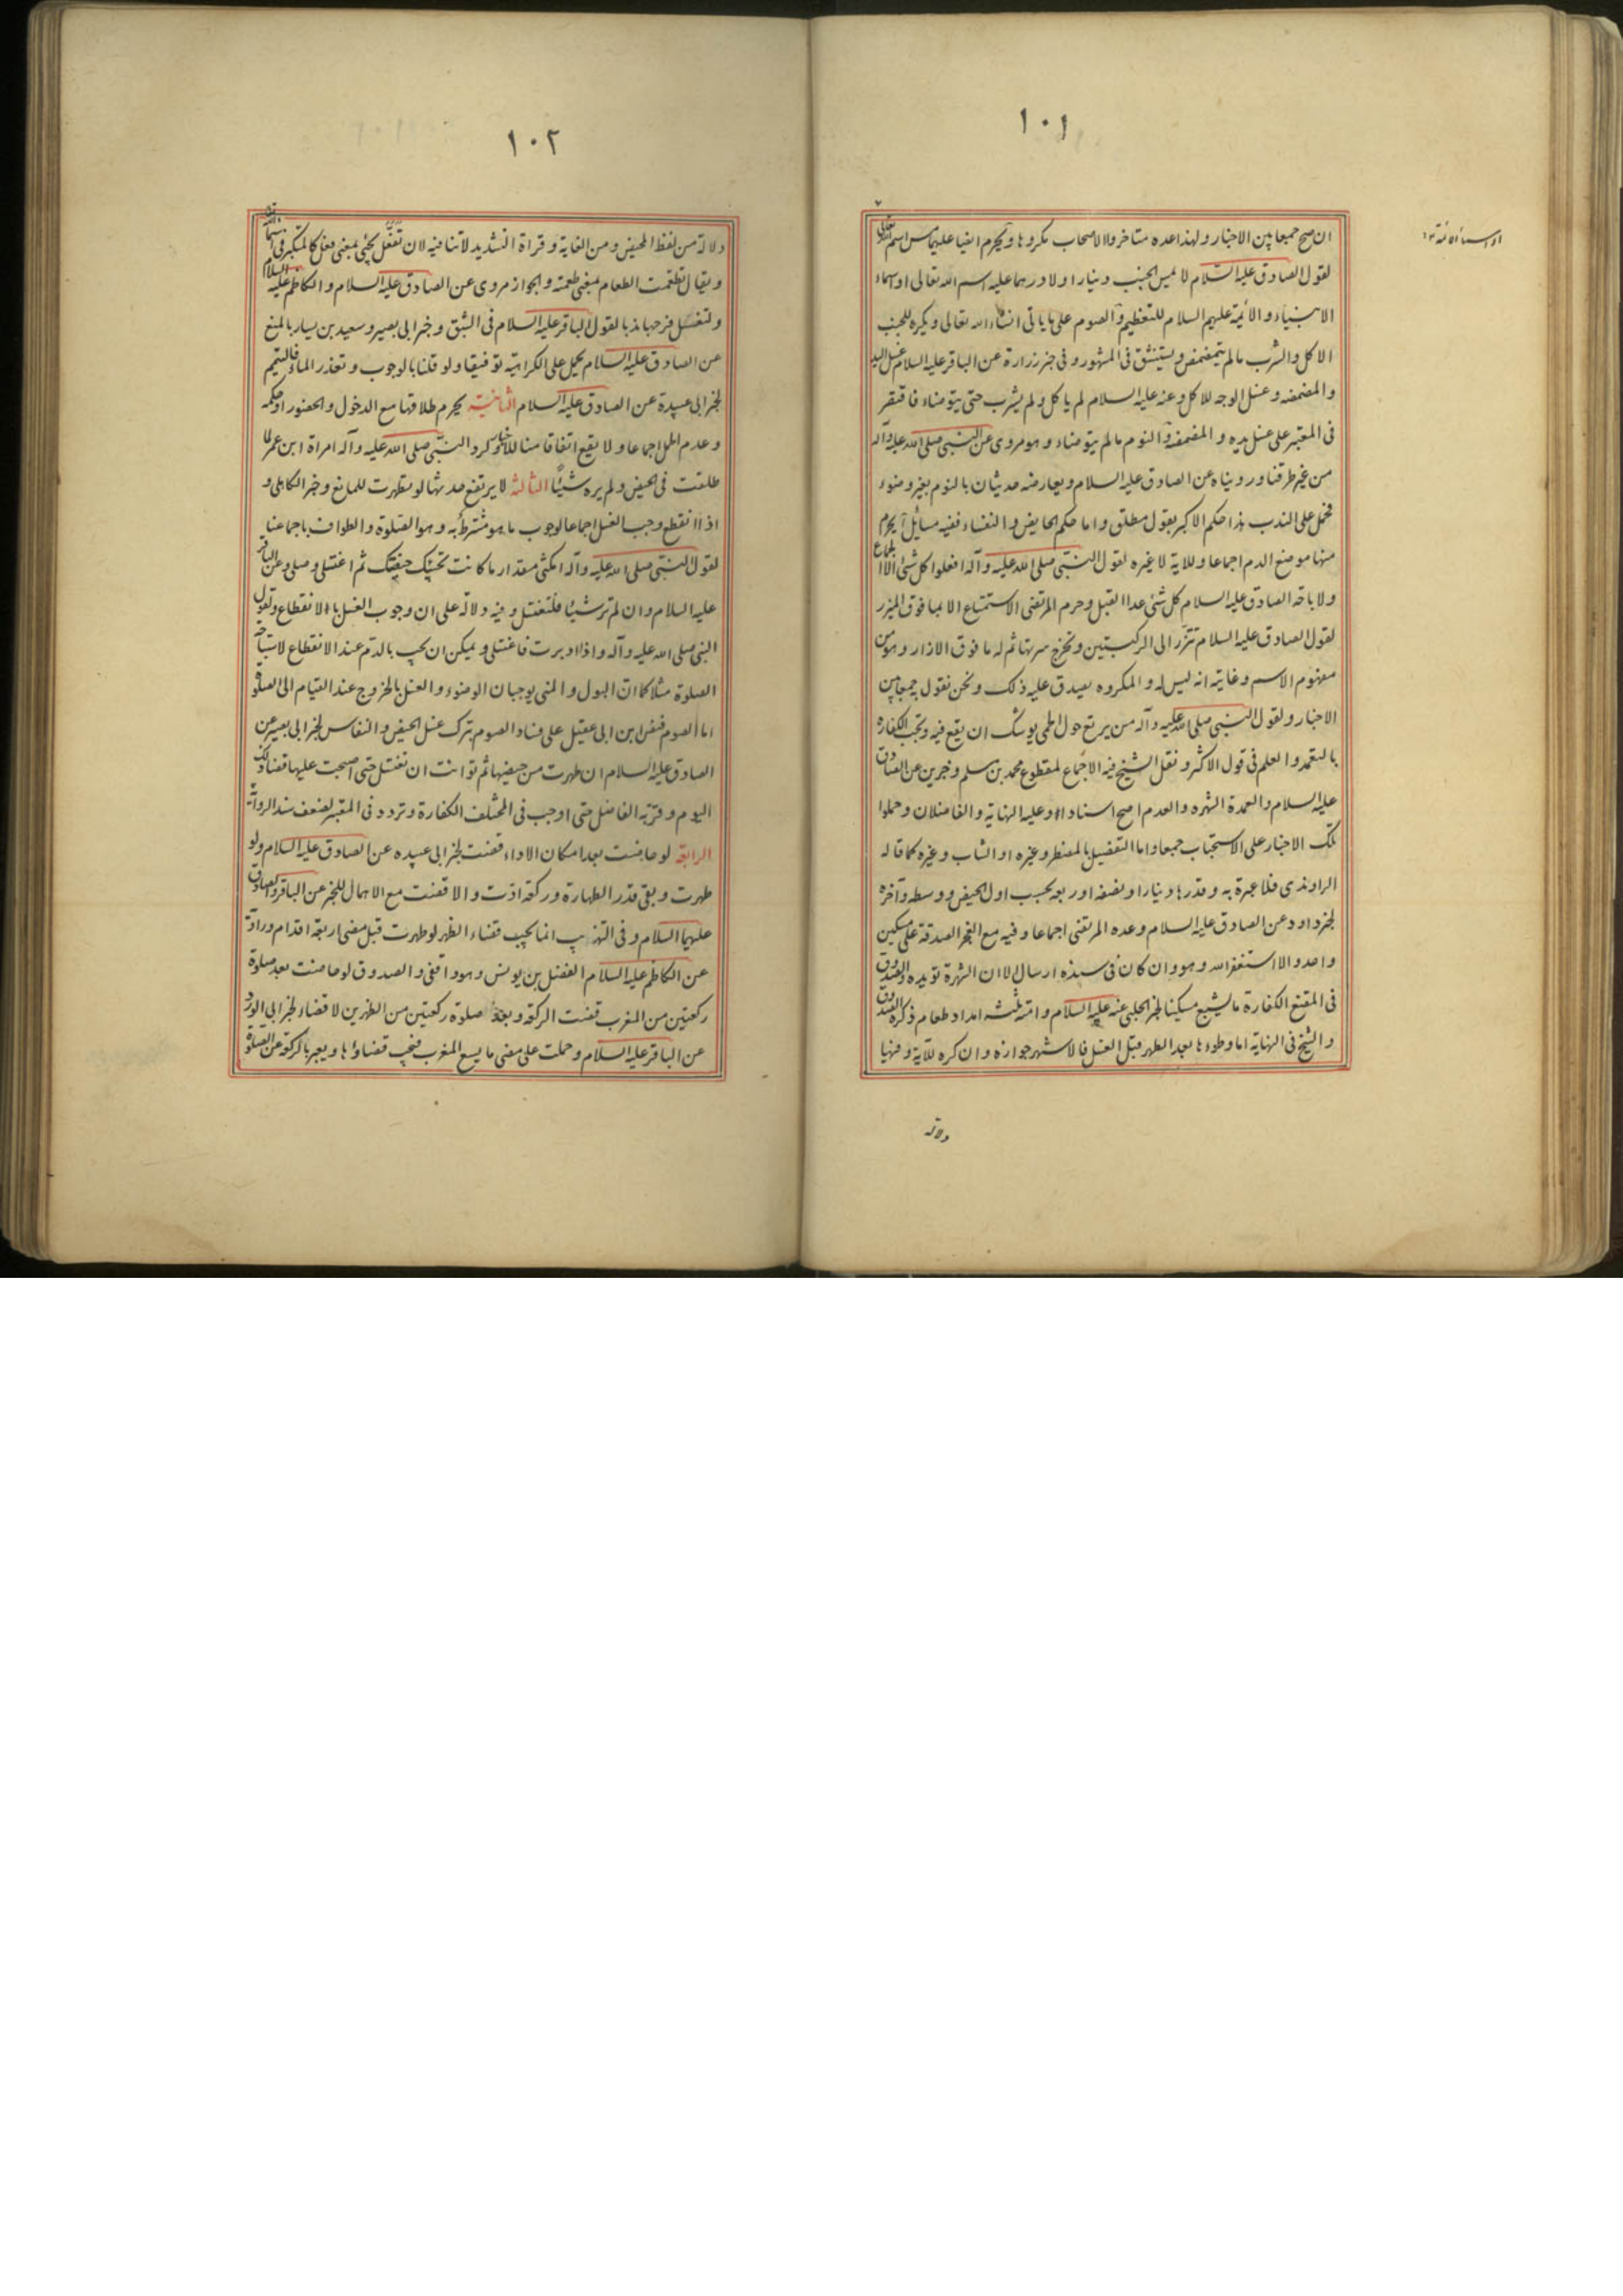 ١٠١
ان صح جمعا بين الاخبار ولهذا عده متاخروا الاصحاب مكروها ويحرم ايضا عليهما مس اسم الله تعالى
لقول الصادق عليه السلام لا يمس الجنب دينارا ولا درهما عليه اسم الله تعالى او اسماء
الانبياء والائمة عليهم السلام للتعظيم والصوم على ما ياتى انشاء الله تعالى ويكره للجنب
الاكل والشرب ما لم يتمضمض ويستنشق فى المشهور وفى خبر زرارة عن الباقر عليه السلام غسل اليد
والمضمضه وغسل الوجه للاكل وعنه عليه السلام لم ياكل ولم يشرب حتى يتوضاء فاقتصر
فى المعتبر على غسل يده والمضمضة والنوم ما لم يتوضاء وهو مروى عن النبى صلى الله عليه وآله
من غير طرقنا وروينا ه عن الصادق عليه السلام ويعارضه حديثان بالنوم بغير وضوء
فحمل على الندب هذا حكم الاكبر بقول مطلق واما حكم الحايض والنفساء ففيه مسايل آ يحرم
منها موضع الدم اجماعا وللاية لا غيره لقول النبى صلى الله عليه وآله افعلوا كل شئ الا الجماع
ولاباحة الصادق عليه السلام كل شئ عدا القبل وحرم المرتضى الاستمتاع الا بما فوق الميزر
لقول الصادق عليه السلام تتزر الى الركبتين وتخرج سرتها ثم له ما فوق الازار وهو من
مفهوم الاسم وغايته انه ليس له والمكروه يصدق عليه ذلك ونحن نقول به جمعا بين
الاخبار ولقول النبى صلى الله عليه وآله من يرتع حول الحمى يوشك ان يقع فيه وتجب الكفاره
بالتعمد والعلم فى قول الاكثر ونقل الشيخ فيه الاجماع لمقطوع محمد بن مسلم وخبرين عن الصادق
عليه السلام والعمدة الشهره والعدم اصح اسنادا وعليه النهاية والفاضلان وحملوا
تلك الاخبار على الاستحباب جمعا واما التفضيل بالمضطر وغيره او الشاب وغيره كما قاله
الراوندى فلا عبرة به وقدرها دينار او نصفه او ربعه بحسب اول الحيض ووسطه وآخره
لخبر داود عن الصادق عليه السلام وعده المرتضى اجماعا وفيه مع العجز الصدقة على مسكين
واحد والا استغفر الله وهو وان كان فى سنده ارسال الا ان الشهرة تؤيده والصدوق
فى المقنع الكفارة ما يشبع مسكينا لخبر الحلبى عنه عليه السلام وامته ثلثه امداد طعام ذكره الصدوق
والشيخ فى النهاية اما وطوءها بعد الطهر قبل الغسل فالاشهر جوازه وان كره للآية وفيها
دلالة
١٠٢
دلالة من لفظ المحيض ومن الغاية وقراة التشديد لا تنافيه لان تفعّل يجئ بمعنى فعل كالمتكبر فى اسمائه تعالى
ويقال تطعمت الطعام بمعنى طعمته والجواز مروى عن الصادق عليه السلام والكاظم عليه السلام
ولتغسل فرجها ندبا لقول الباقر عليه السلام فى الشبق وخبر ابى بصير وسعيد بن يسار بالمنع
عن الصادق عليه السلام يحمل على الكراهية توفيقا ولو قلنا بالوجوب وتعذر الماء فالتيمم
لخبر ابى عبيدة عن الصادق عليه السلام الثانية يحرم طلاقها مع الدخول والحضور او حكمه
وعدم الحمل اجماعا ولا يقع اتفاقا منا للاخبار كرد النبى صلى الله عليه وآله امراة ابن عمر لما
طلقت فى الحيض ولم يره شيئا الثالثة لا يرتفع حدثها لو تطهرت للمانع وخبر الكاهلى و
اذا انقطع وجب الغسل اجماعا لوجوب ما هو مشترط به وهو الصلوة والطواف باجماعنا
لقول النبى صلى الله عليه وآله امكثى مقدار ما كانت تحبسك حيضتك ثم اغتسلى وصلى وعن الباقر
عليه السلام وان لم تر شيئا فلتغتسل وفيه دلالة على ان وجوب الغسل بالانقطاع ولقول
النبى صلى الله عليه وآله واذا ادبرت فاغتسلى ويمكن ان يجب بالدم عند الانقطاع لاستباحة
الصلوة مثلا كما ان البول والمنى يوجبان الوضوء والغسل بالخروج عند القيام الى الصلوة
اما الصوم فنص ابن ابى عقيل على فساد الصوم بترك غسل الحيض والنفاس لخبر ابى بصير عن
الصادق عليه السلام ان طهرت من حيضها ثم توانت ان تغتسل حتى اصبحت عليها قضاء ذلك
اليوم وقربه الفاضل حتى اوجب فى المختلف الكفارة وتردد فى المعتبر لضعف سند الرواية
الرابعة لو حاضت بعد امكان الاداء قضت لخبر ابى عبيده عن الصادق عليه السلام ولو
طهرت وبقى قدر الطهارة وركعة ادت والا قضت مع الاهمال للخبر عن الباقر والصادق
عليهما السلام وفى التهذيب انما يجب قضاء الظهر لو طهرت قبل مضى اربعة اقدام ورواه
عن الكاظم عليه السلام الفضل بن يونس وهو واقفى والصدوق لو حاضت بعد صلوة
ركعتين من المغرب قضت الركعة وبعد صلوة ركعتين من الظهرين لا قضاء لخبر ابى الورد
عن الباقر عليه السلام وحملت على مضى ما يسع المغرب فيجب قضاؤها ويعبر بالركعة عن الصلوة